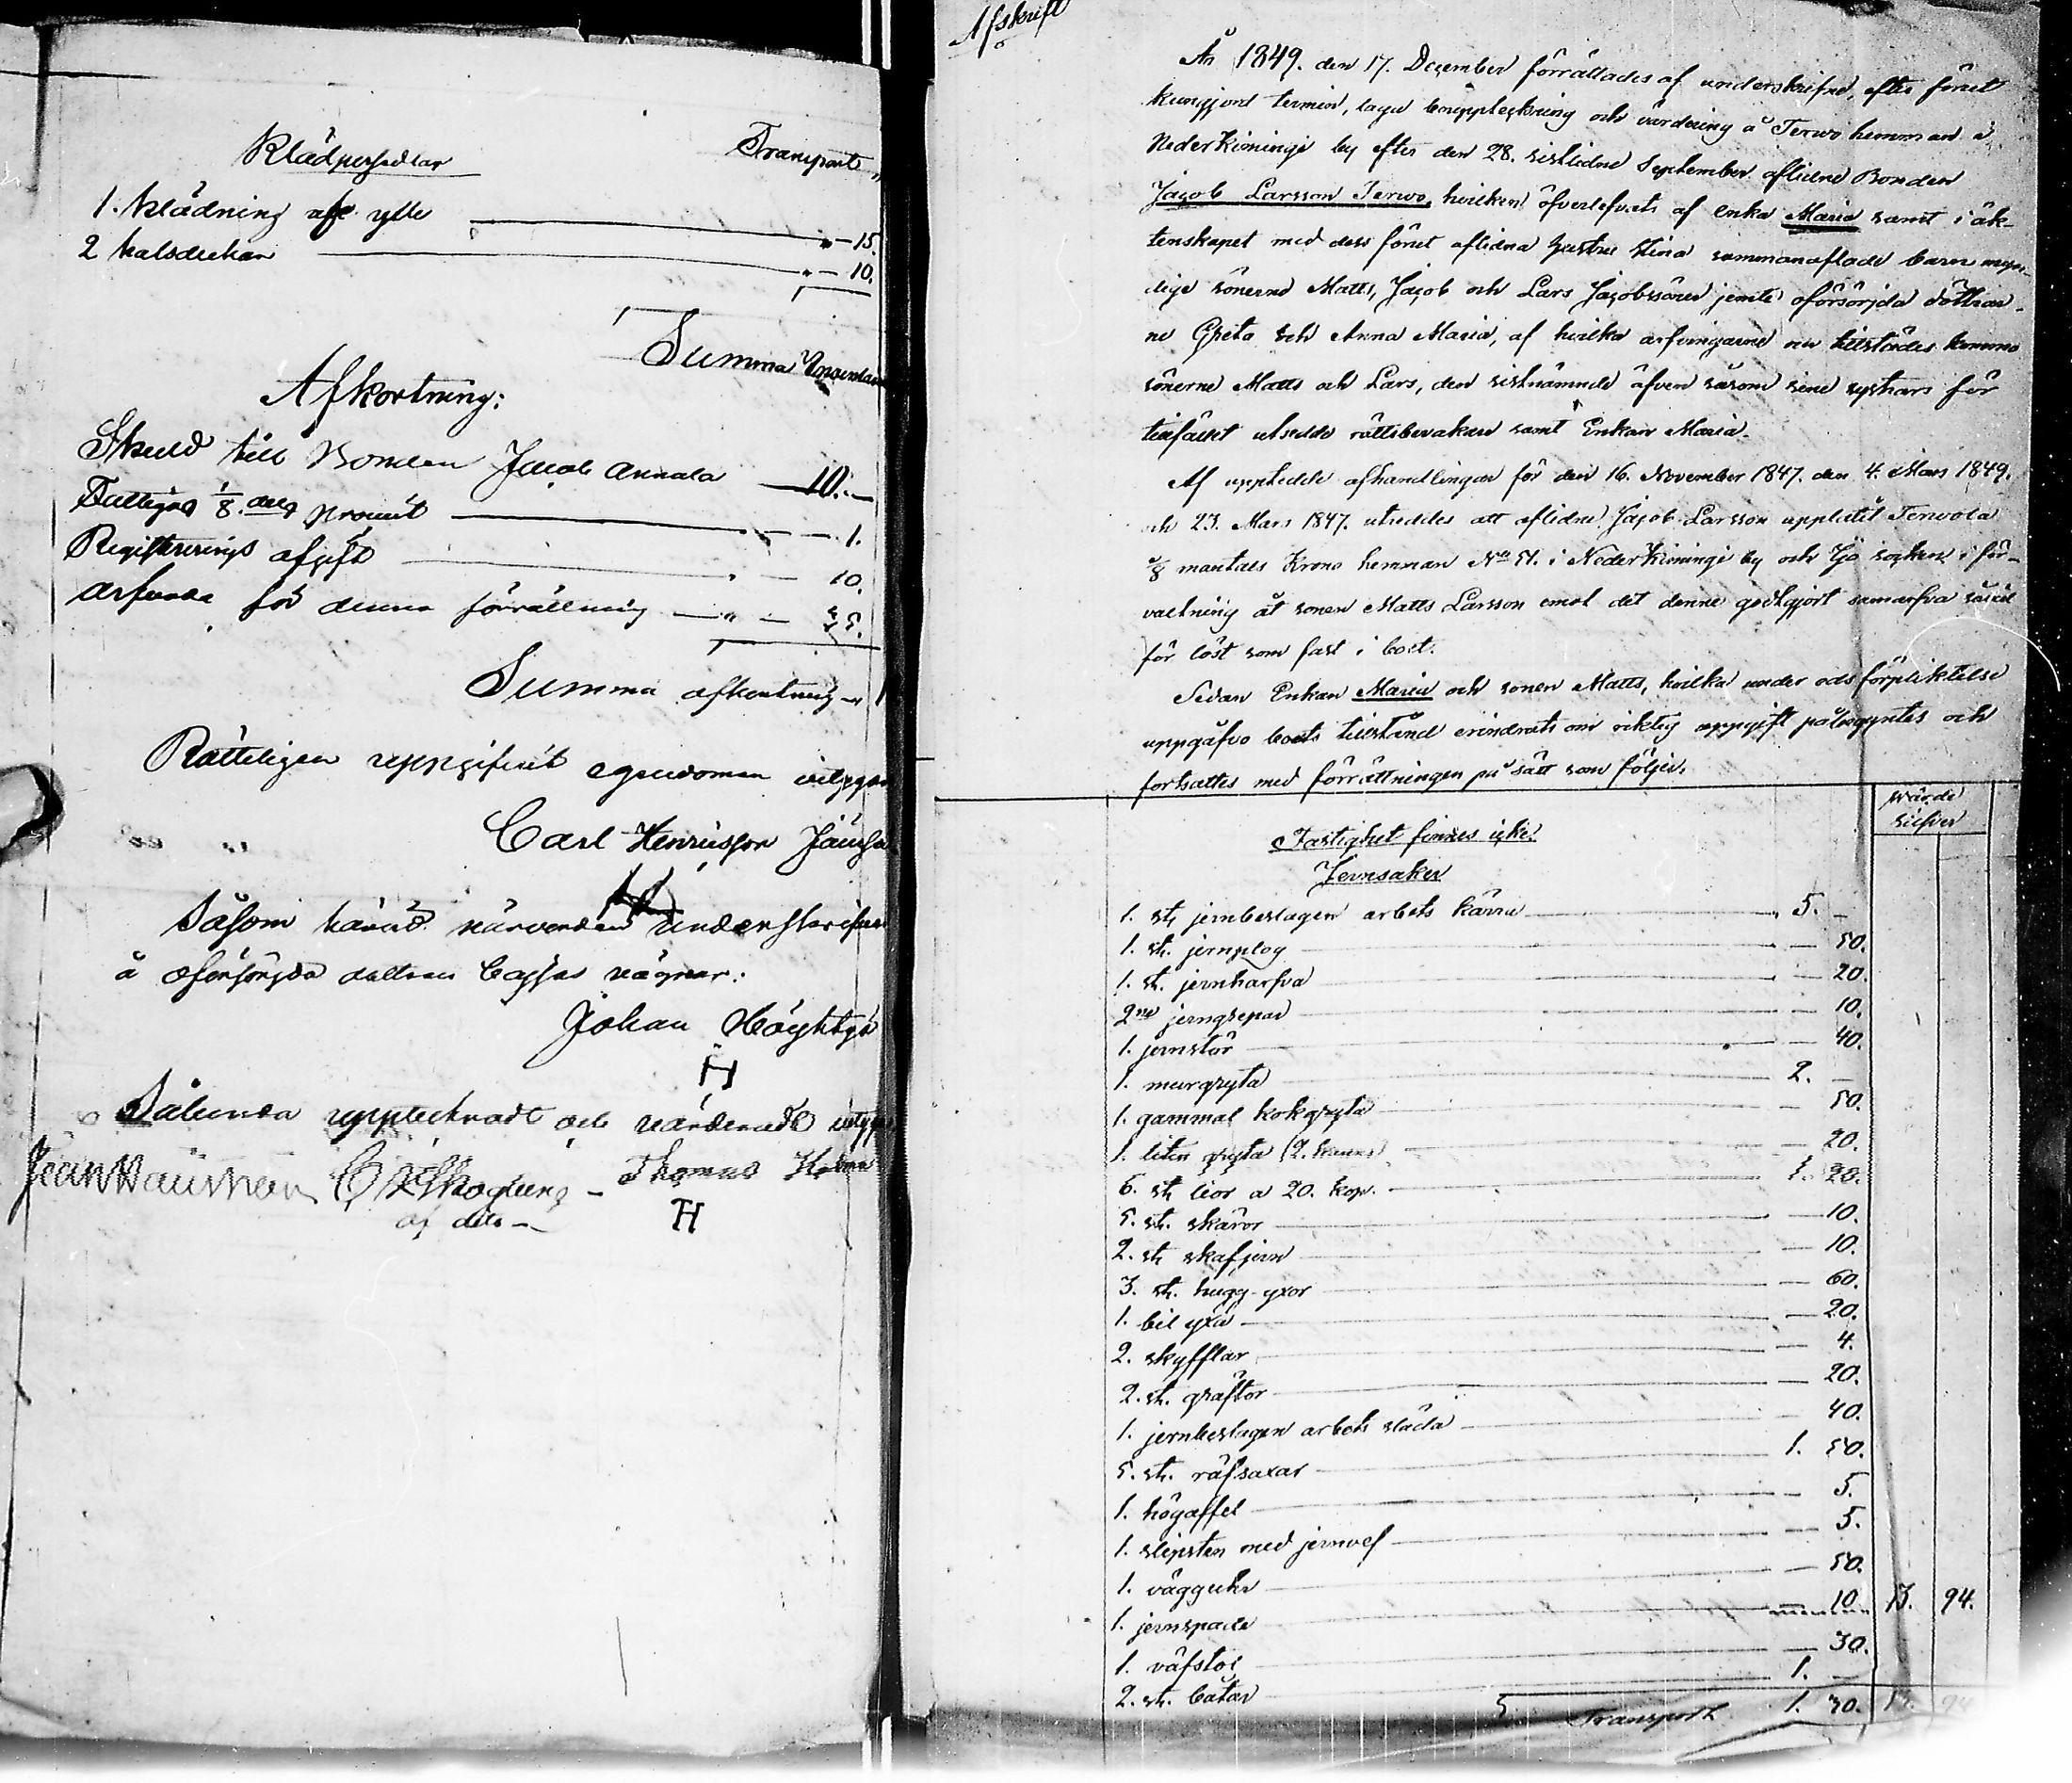 Klädpersedlar Transport
1. klädning af ylle — 15.
2 halsdukar — 10.
Summa
Afkortning:
Skuld till Bonden Jacob Annala — 10. —
Fattigas 1/8 dels procent — 1.
Registrerings afgift — 10.
Arfvode för denna förrättning — 25.
Summa afkortning
Rätteligen uppgifvit egendomen intygar
Carl Henriksson
Såsom härvid närvarande underskrifver
å oförsörjda dottren Cajsas vägnar:
Johan
H
Sålunda upplecknadt och värderadt intyga
Thomas
af dito — H
Afskrift
År 1849. den 17. December förrättades af underskrifne, efter förut
kungjord termin, laga bouppteckning och värdering å Terwo hemman i
Nederkiminge by efter den 28. sistlidne September aflidne Bonden
Jacob Larsson Terwo, hvilken öfverlefvats af enka Maria samt i äk-
tenskapet med dess förut aflidna hustru Stina sammanaflade barn myn-
dige sönerne Matts, Jacob och Lars Jacobssöner jemte oförsörjda döttrar-
ne Greta och Anna Maria, af hvilka arfvingarne nu tillstädes kommo
sönerne Matts och Lars, den sistnämnde äfven såsom sine systrars för
tillfället utsedde rättsbevakare samt Enkan Maria.
Af uppledde afhandlingar för den 16. November 1847. den 4. Mars 1849.
och 23. Mars 1847. utreddes att aflidne Jacob Larsson upplåtit Terwola
mantals Krono hemman No 51. i Nederkiminge by och Ijo socken i för-
valtning åt sonen Matts Larsson emot det denne godtgjort samarfva såväl
för löst som fast i boet.
Sedan Enkan Maria och sonen Matts, hvilka under eds förpliktelse
uppgåfvo boets tillstånd erindrats om riktig uppgift påbegyntes och
fortsattes med förrättningen på sätt som följer.
Wärde
silfver
Fastighet finnes icke.
Jernsaker
1. st. jernbeslagen arbets kärra — 5. —
1. st. jernplog — 50.
1. st. jernharfva — 20.
2ne jerngrepar — 10.
1. jernstör — 40.
1. murgryta — 2. —
1. gammal kokgryta — 50.
1. liten gryta (2. kannor) — 20.
6. st. liar a 20. kop. — 1. 20.
5. st. skäror — 10.
2. st. skafjern — 10.
3. st. hugg-yxor — 60.
1. bil yxa — 20.
2. skyfflar — 4.
2. st. gräftor — 20.
1. jernbeslagen arbets släda — 40.
5. st. räfsaxar — 1. 50.
1. högaffel — 5.
1. slipsten med jernvef — 5.
1. vägguhr — 50.
1. jernspade — 10. 13. 94.
1. väfstol — 30.
2. st. båtar — 1. —
Transport 1. 30. 13. 94